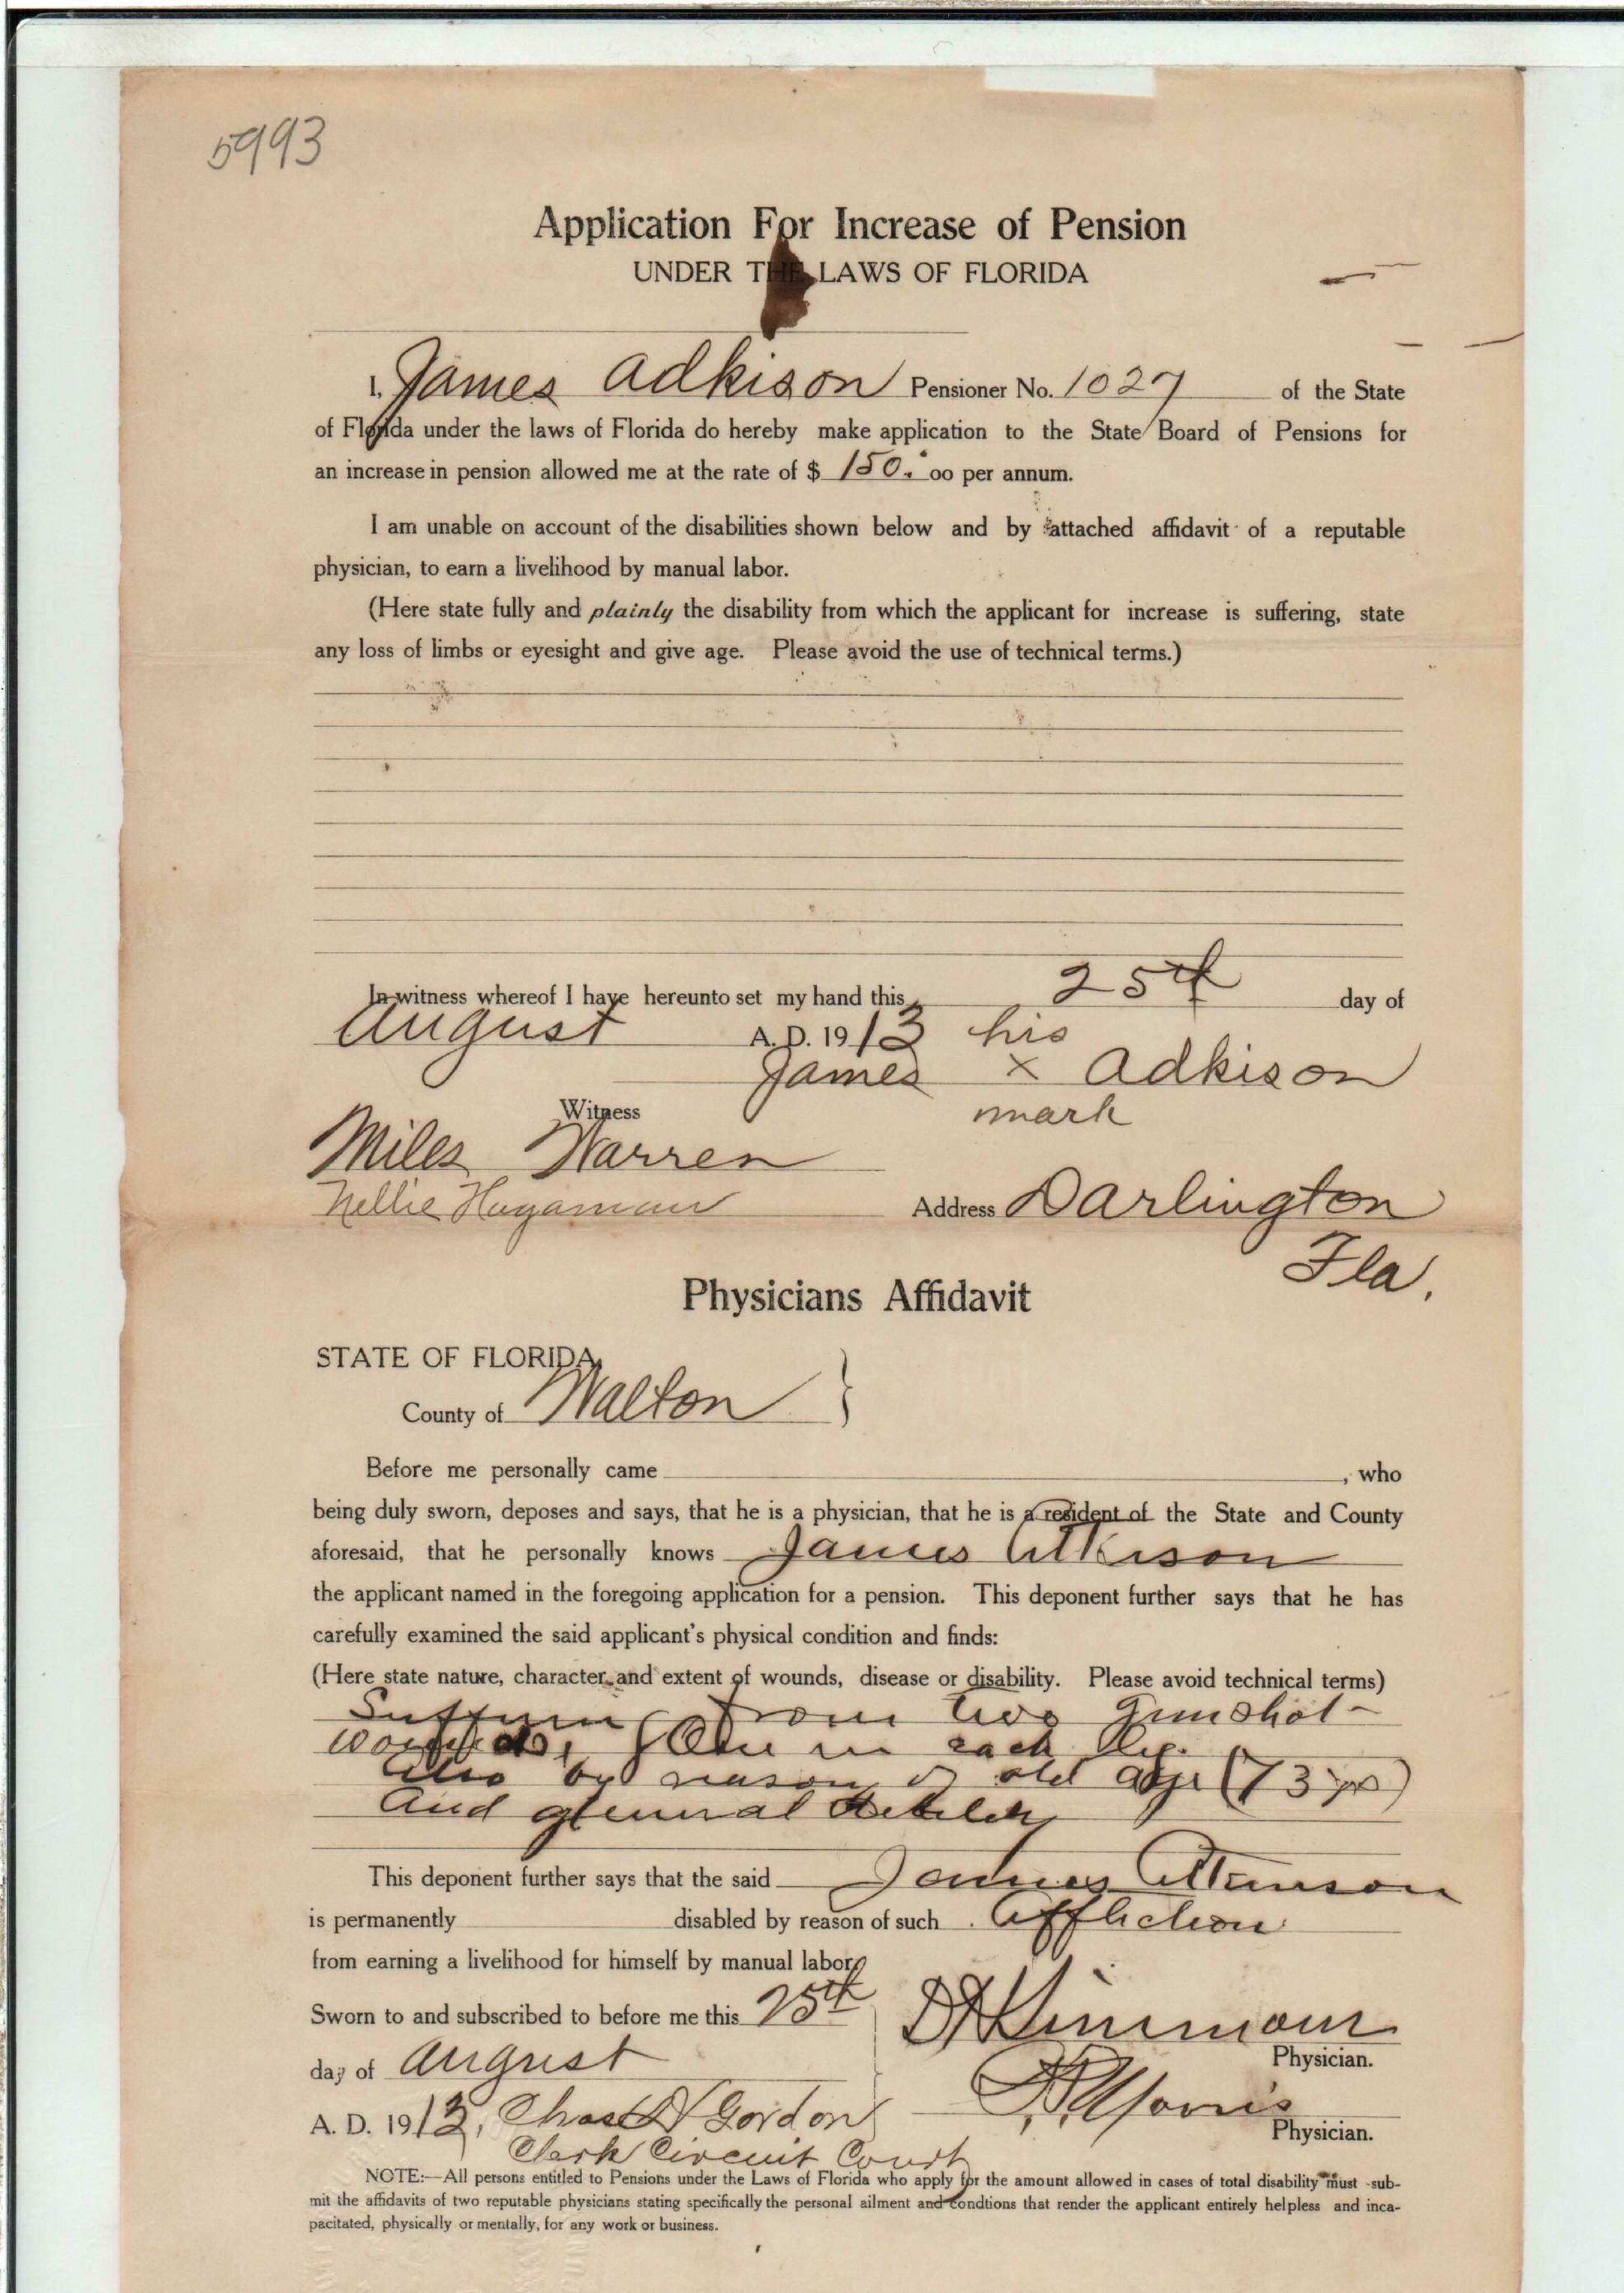 5993
Application For Increase of Pension
UNDER THE LAWS OF FLORIDA
I, James Adkison Pensioner No. 1027 of the State
of Florida under the laws of Florida do hereby make application to the State Board of Pensions for
an increase in pension allowed me at the rate of $ 150. 00 per annum.
I am unable on account of the disabilities shown below and by attached affidavit of a reputable
physician, to earn a livelihood by manual labor.
(Here state fully and plainly the disability from which the applicant for increase is suffering, state
any loss of limbs or eyesight and give age. Please avoid the use of technical terms.)
In witness whereof I have hereunto set my hand this 25th day of
August A. D. 1913 his
James x Adkison
Witness mark
Miles Warren
Nellie Hagaman Address Darlington
Fla.
Physicians Affidavit
STATE OF FLORIDA,
County of Walton }
Before me personally came , who
being duly sworn, deposes and says, that he is a physician, that he is a resident of the State and County
aforesaid, that he personally knows James Atkison
the applicant named in the foregoing application for a pension. This deponent further says that he has
carefully examined the said applicant's physical condition and finds:
(Here state nature, character and extent of wounds, disease or disability. Please avoid technical terms)
Suffering from two gunshot
wounds, One in each leg.
Also by reason of old age (73 yrs)
and general debility
This deponent further says that the said James Atkinson
is permanently disabled by reason of such affliction
from earning a livelihood for himself by manual labor.
Sworn to and subscribed to before me this 25th
day of August Physician.
A. D. 1913, Chas Gordon Physician.
Clerk Circuit Court
NOTE:—All persons entitled to Pensions under the Laws of Florida who apply for the amount allowed in cases of total disability must sub-
mit the affidavits of two reputable physicians stating specifically the personal ailment and condtions that render the applicant entirely helpless and inca-
pacitated, physically or mentally, for any work or business.